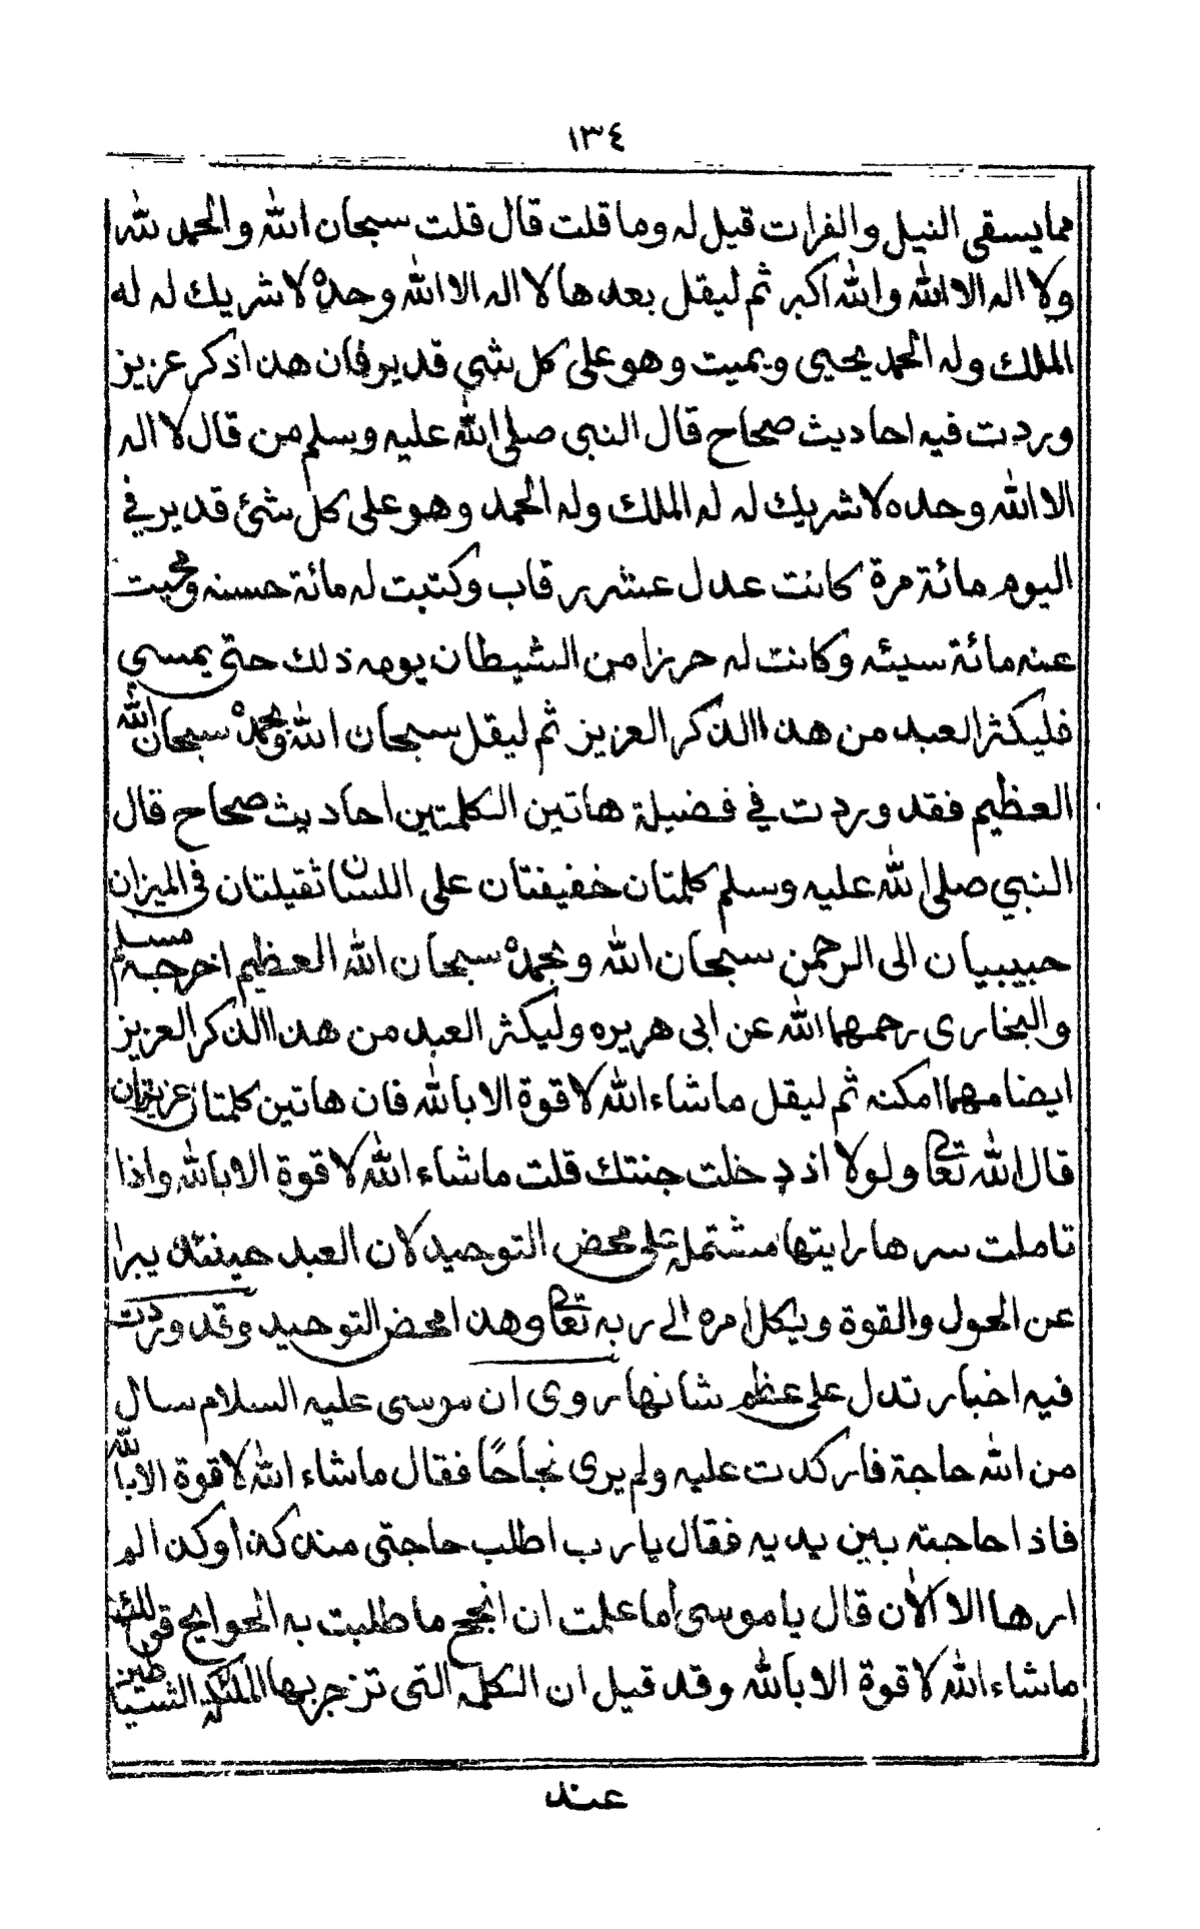 ١٣٤
مما يسقى النيل والفرات قيل له وما قلت قال قلت سبحان الله والحمد لله
ولا اله الا الله والله اكبر ثم ليقل بعدها لا اله الا الله وحده لا شريك له له
الملك وله الحمد يحيى ويميت وهو على كل شي قدير فان هذا ذكر عزيز
وردت فيه احاديث صحاح قال النبى صلى الله عليه وسلم من قال لا اله
الا الله وحده لا شريك له له الملك وله الحمد وهو على كل شئ قدير في
اليوم مائة مرة كانت عدل عشر رقاب وكتبت له مائة حسنه ومحيت
عنه مائة سيئه وكانت له حرزا من الشيطان يومه ذلك حتى يمسى
فليكثر العبد من هذا الذكر العزيز ثم ليقل سبحان الله وبحمده سبحان الله
العظيم فقد وردت في فضيلة هاتين الكلمتين احاديث صحاح قال
النبي صلى الله عليه وسلم كلمتان خفيفتان على اللسان ثقيلتان فى الميزان
حبيبيان الى الرحمن سبحان الله وبحمده سبحان الله العظيم اخرجه مسلم
والبخارى رحمهما الله عن ابى هريره وليكثر العبد من هذا الذكر العزيز
ايضا مهما امكنه ثم ليقل ما شاء الله لا قوة الا بالله فان هاتين كلمتان عزيزتان
قال الله تعالى ولولا اذ دخلت جنتك قلت ما شاء الله لا قوة الا بالله واذا
تاملت سرها رايتها مشتملة على محض التوحيد لان العبد حينئذ يبرا
عن الحول والقوة ويكل امره الى ربه تعالى وهذا محض التوحيد وقد وردت
فيه اخبار تدل على عظم شانها روى ان موسى عليه السلام سال
من الله حاجة فاركدت عليه ولم يرى نجاحًا فقال ما شاء الله لا قوة الا بالله
فاذا حاجته بين يديه فقال يا رب اطلب حاجتى منذ كذا وكذا لم
ارها الا الآن قال يا موسى أما علمت ان انجح ما طلبت به الحوايج قولك
ما شاء الله لا قوة الا بالله وقد قيل ان الكلمه التى تزجر بها الملئكه الشياطين
عند